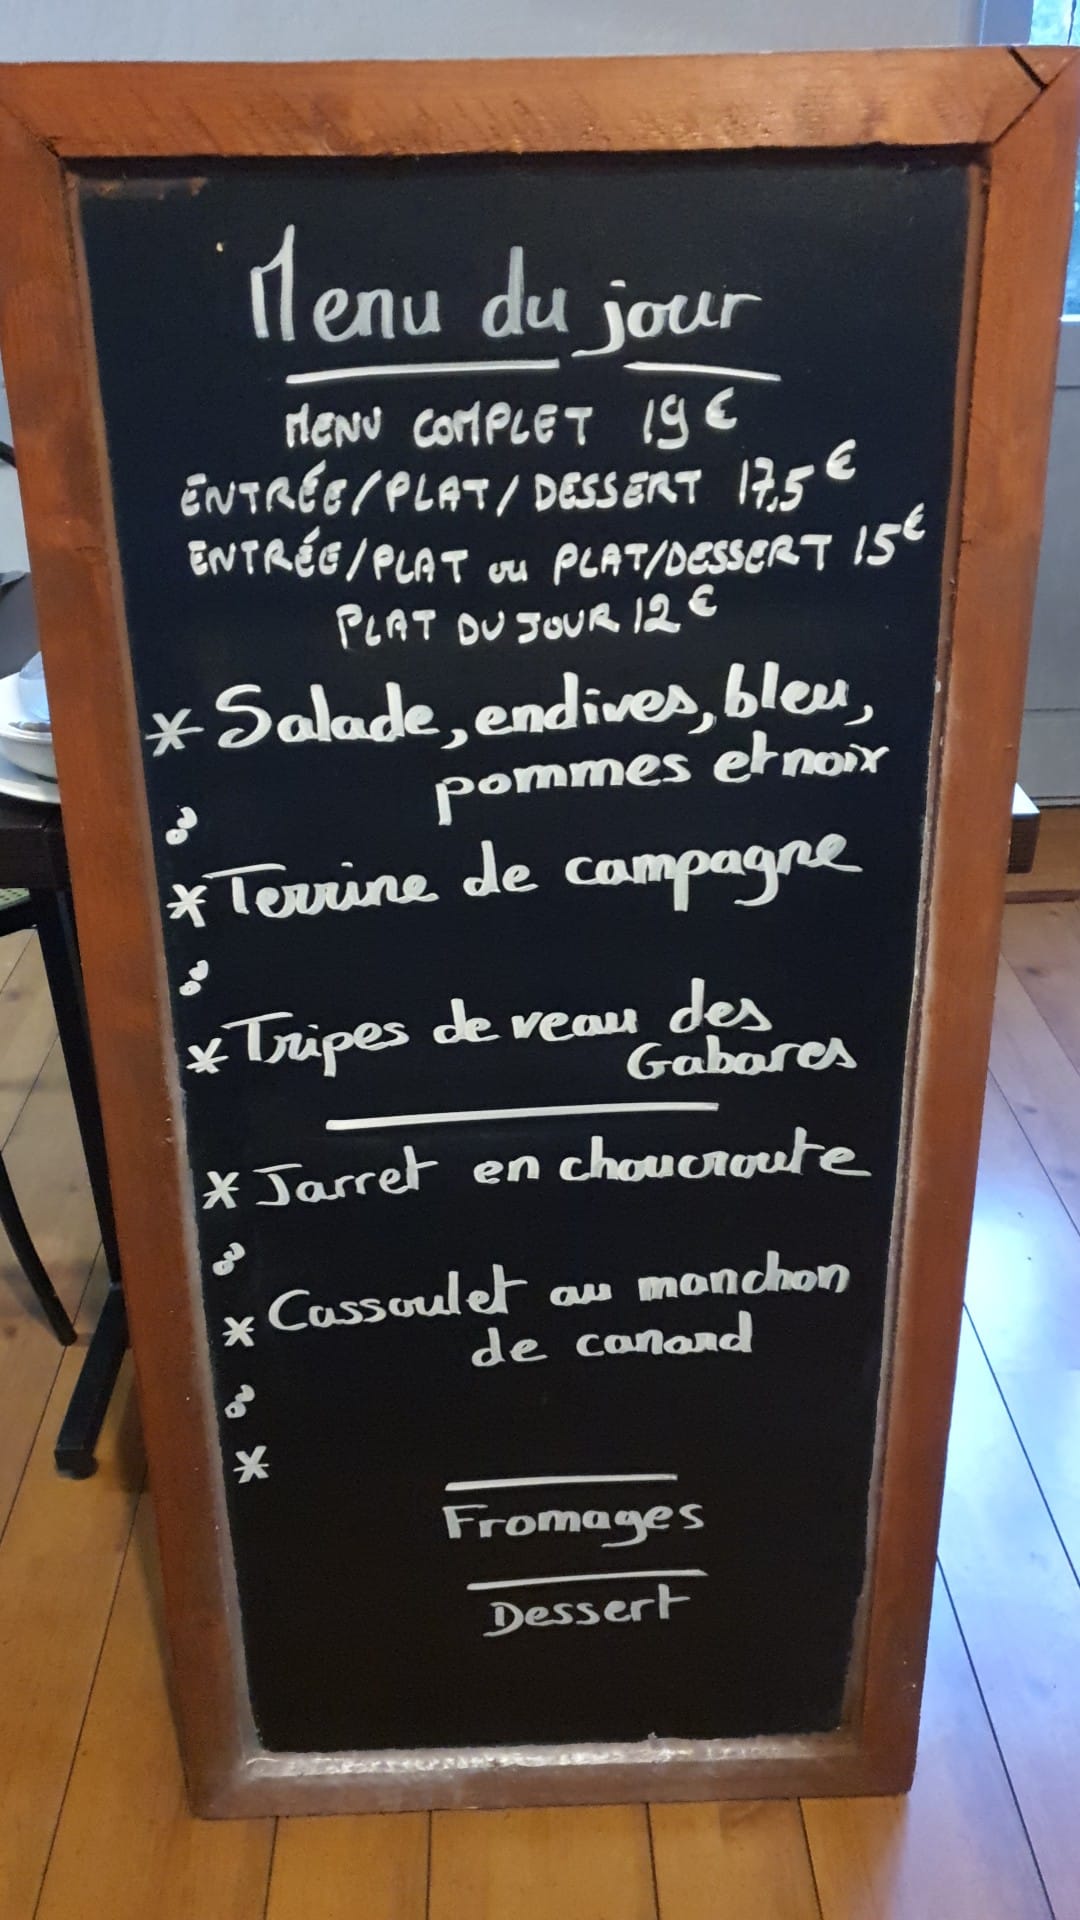 Menu du jour
MENU COMPLET 19€
ENTRÉE/PLAT/DESSERT 17,5€
ENTRÉE/PLAT ou PLAT/DESSERT 15€
PLAT DU JOUR 12€
* Salade, endives, bleu,
pommes et noix
* Terrine de campagne
* Tripes de veau des
Gabares
* Jarret en choucroute
* Cassoulet au manchon
de canard
*
Fromages
Dessert